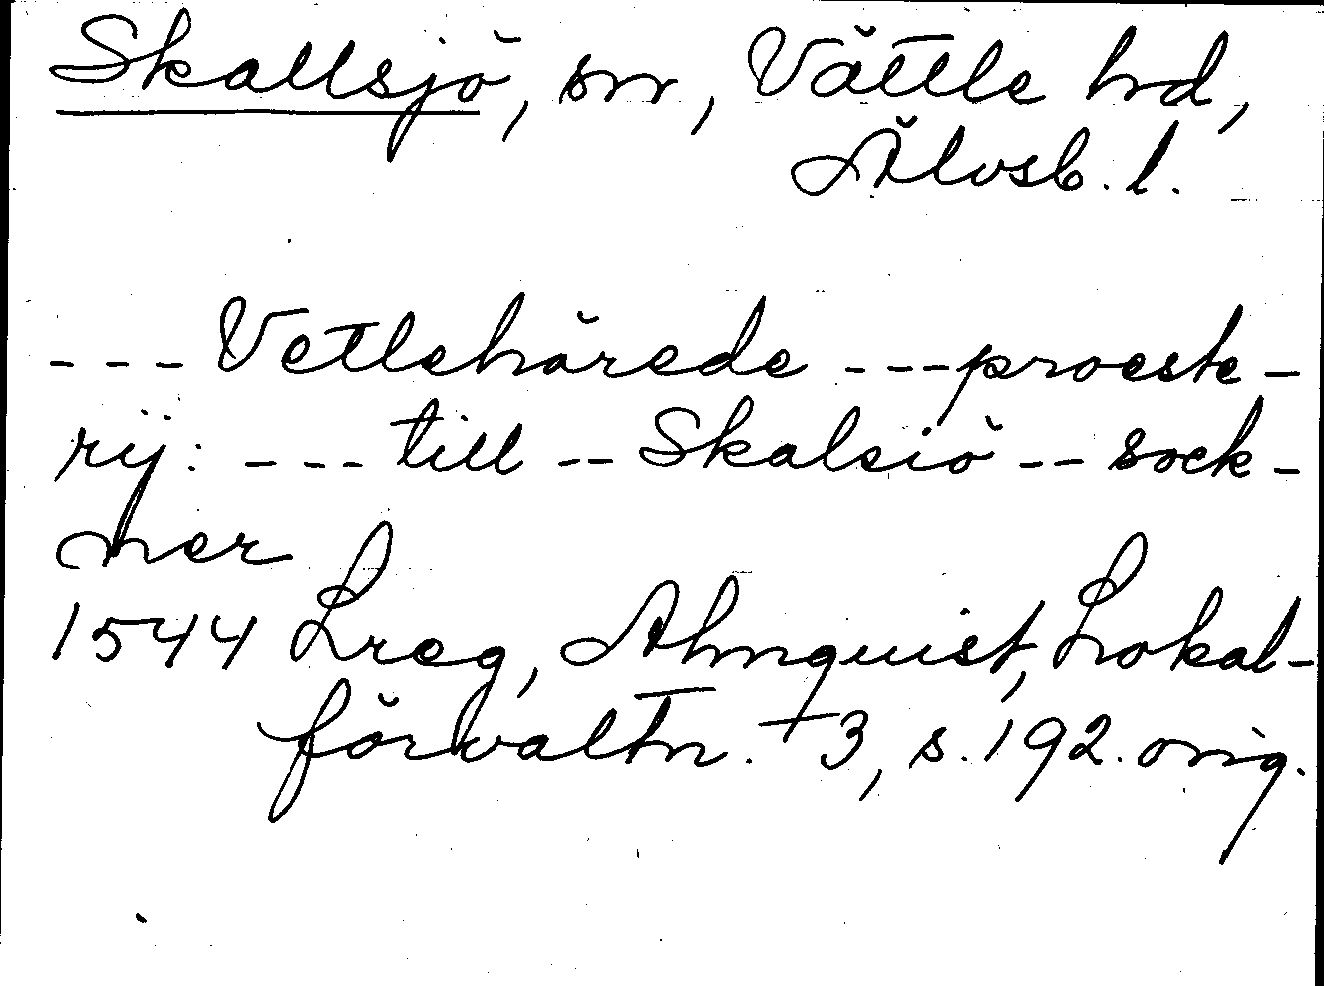 Skallsjö, sn, Vättle hd,
Älvsb. l.
--- Vetlehärede --- proeste-
rij: --- till -- Skalsiö -- sock-
ner
1544 Lreg, Almquist, Lokal-
förvaltn. 3, s. 192. orig.